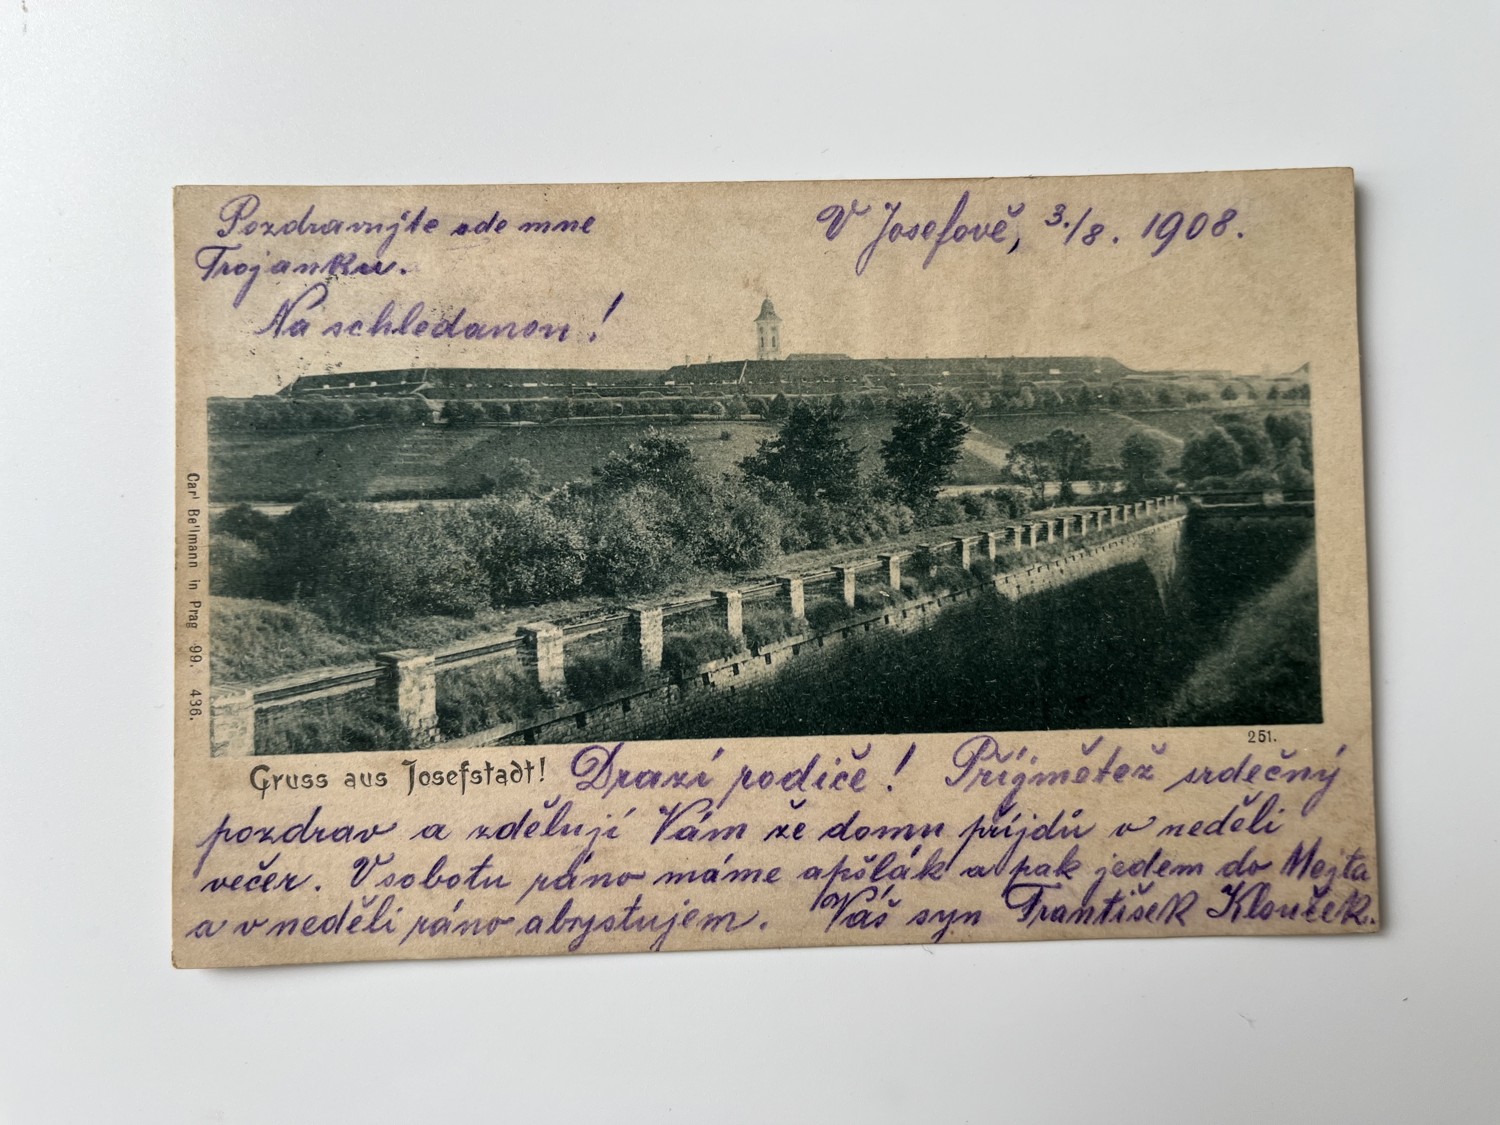 Pozdravujte ode mne
Trojanku.
Na schledanou!
V Josefově, 3./8. 1908.
Carl Bellmann in Prag 99. 436.
251.
Gruss aus Josefstadt!
Drazí rodiče! Příjmětež srdečný
pozdrav a zdělují Vám že domu příjdů v neděli
večer. V sobotu ráno máme apšlák a pak jedem do Mejta
a v neděli ráno abrystujem. Váš syn František Klouček.